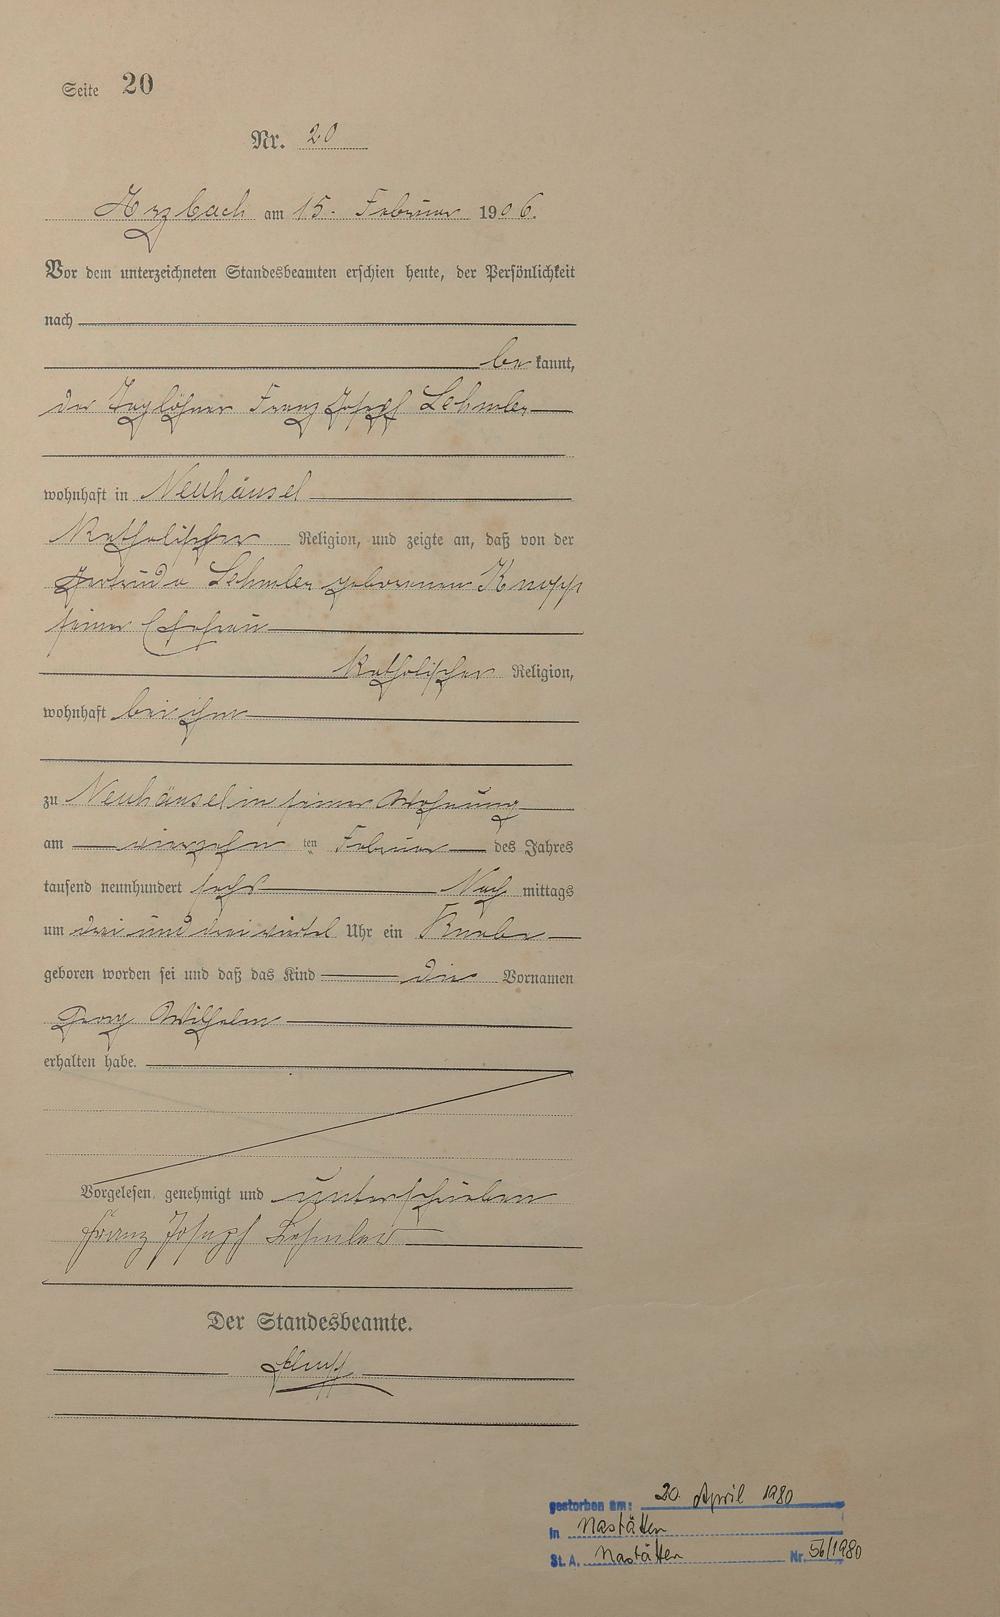 Seite 20
Nr. 20
Arzbach am 15. Februar 1906.
Vor dem unterzeichneten Standesbeamten erschien heute, der Persönlichkeit
nach
be kannt,
der Taglöhner Franz Josef Lehmler
wohnhaft in Neuhäusel
Katholischer Religion, und zeigte an, daß von der
Gertruda Lehmler geborenen Knopp
seiner Ehefrau
Katholischer Religion,
wohnhaft bei ihm
zu Neuhäusel in seiner Wohnung
am vierzehn ten Februar des Jahres
tausend neunhundert sechs Nach mittags
um drei und dreiviertel Uhr ein Knabe
geboren worden sei und daß das Kind die Vornamen
Georg Wilhelm
erhalten habe.
Vorgelesen, genehmigt und unterschrieben
Franz Joseph Lehmler
Der Standesbeamte.
gestorben am: 20. April 1980
in Nastätten
St. A. Nastätten Nr. 56/1980